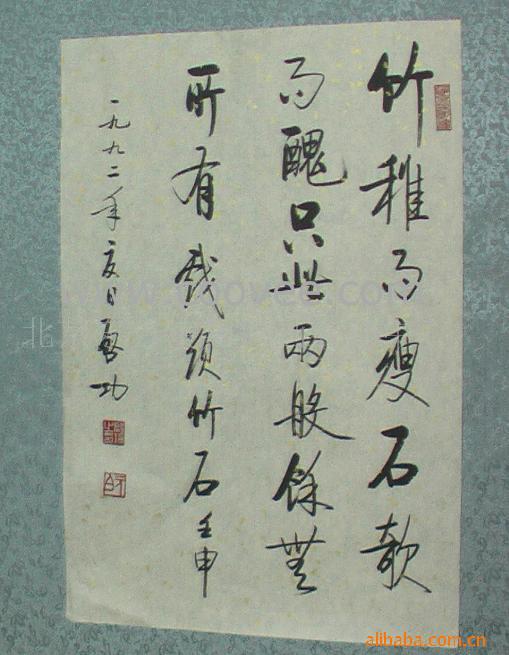 竹稚而瘦石欹
而醜只此兩般餘無
所有戲題竹石壬申
一九九二年夏日啓功
alibaba.com.cn